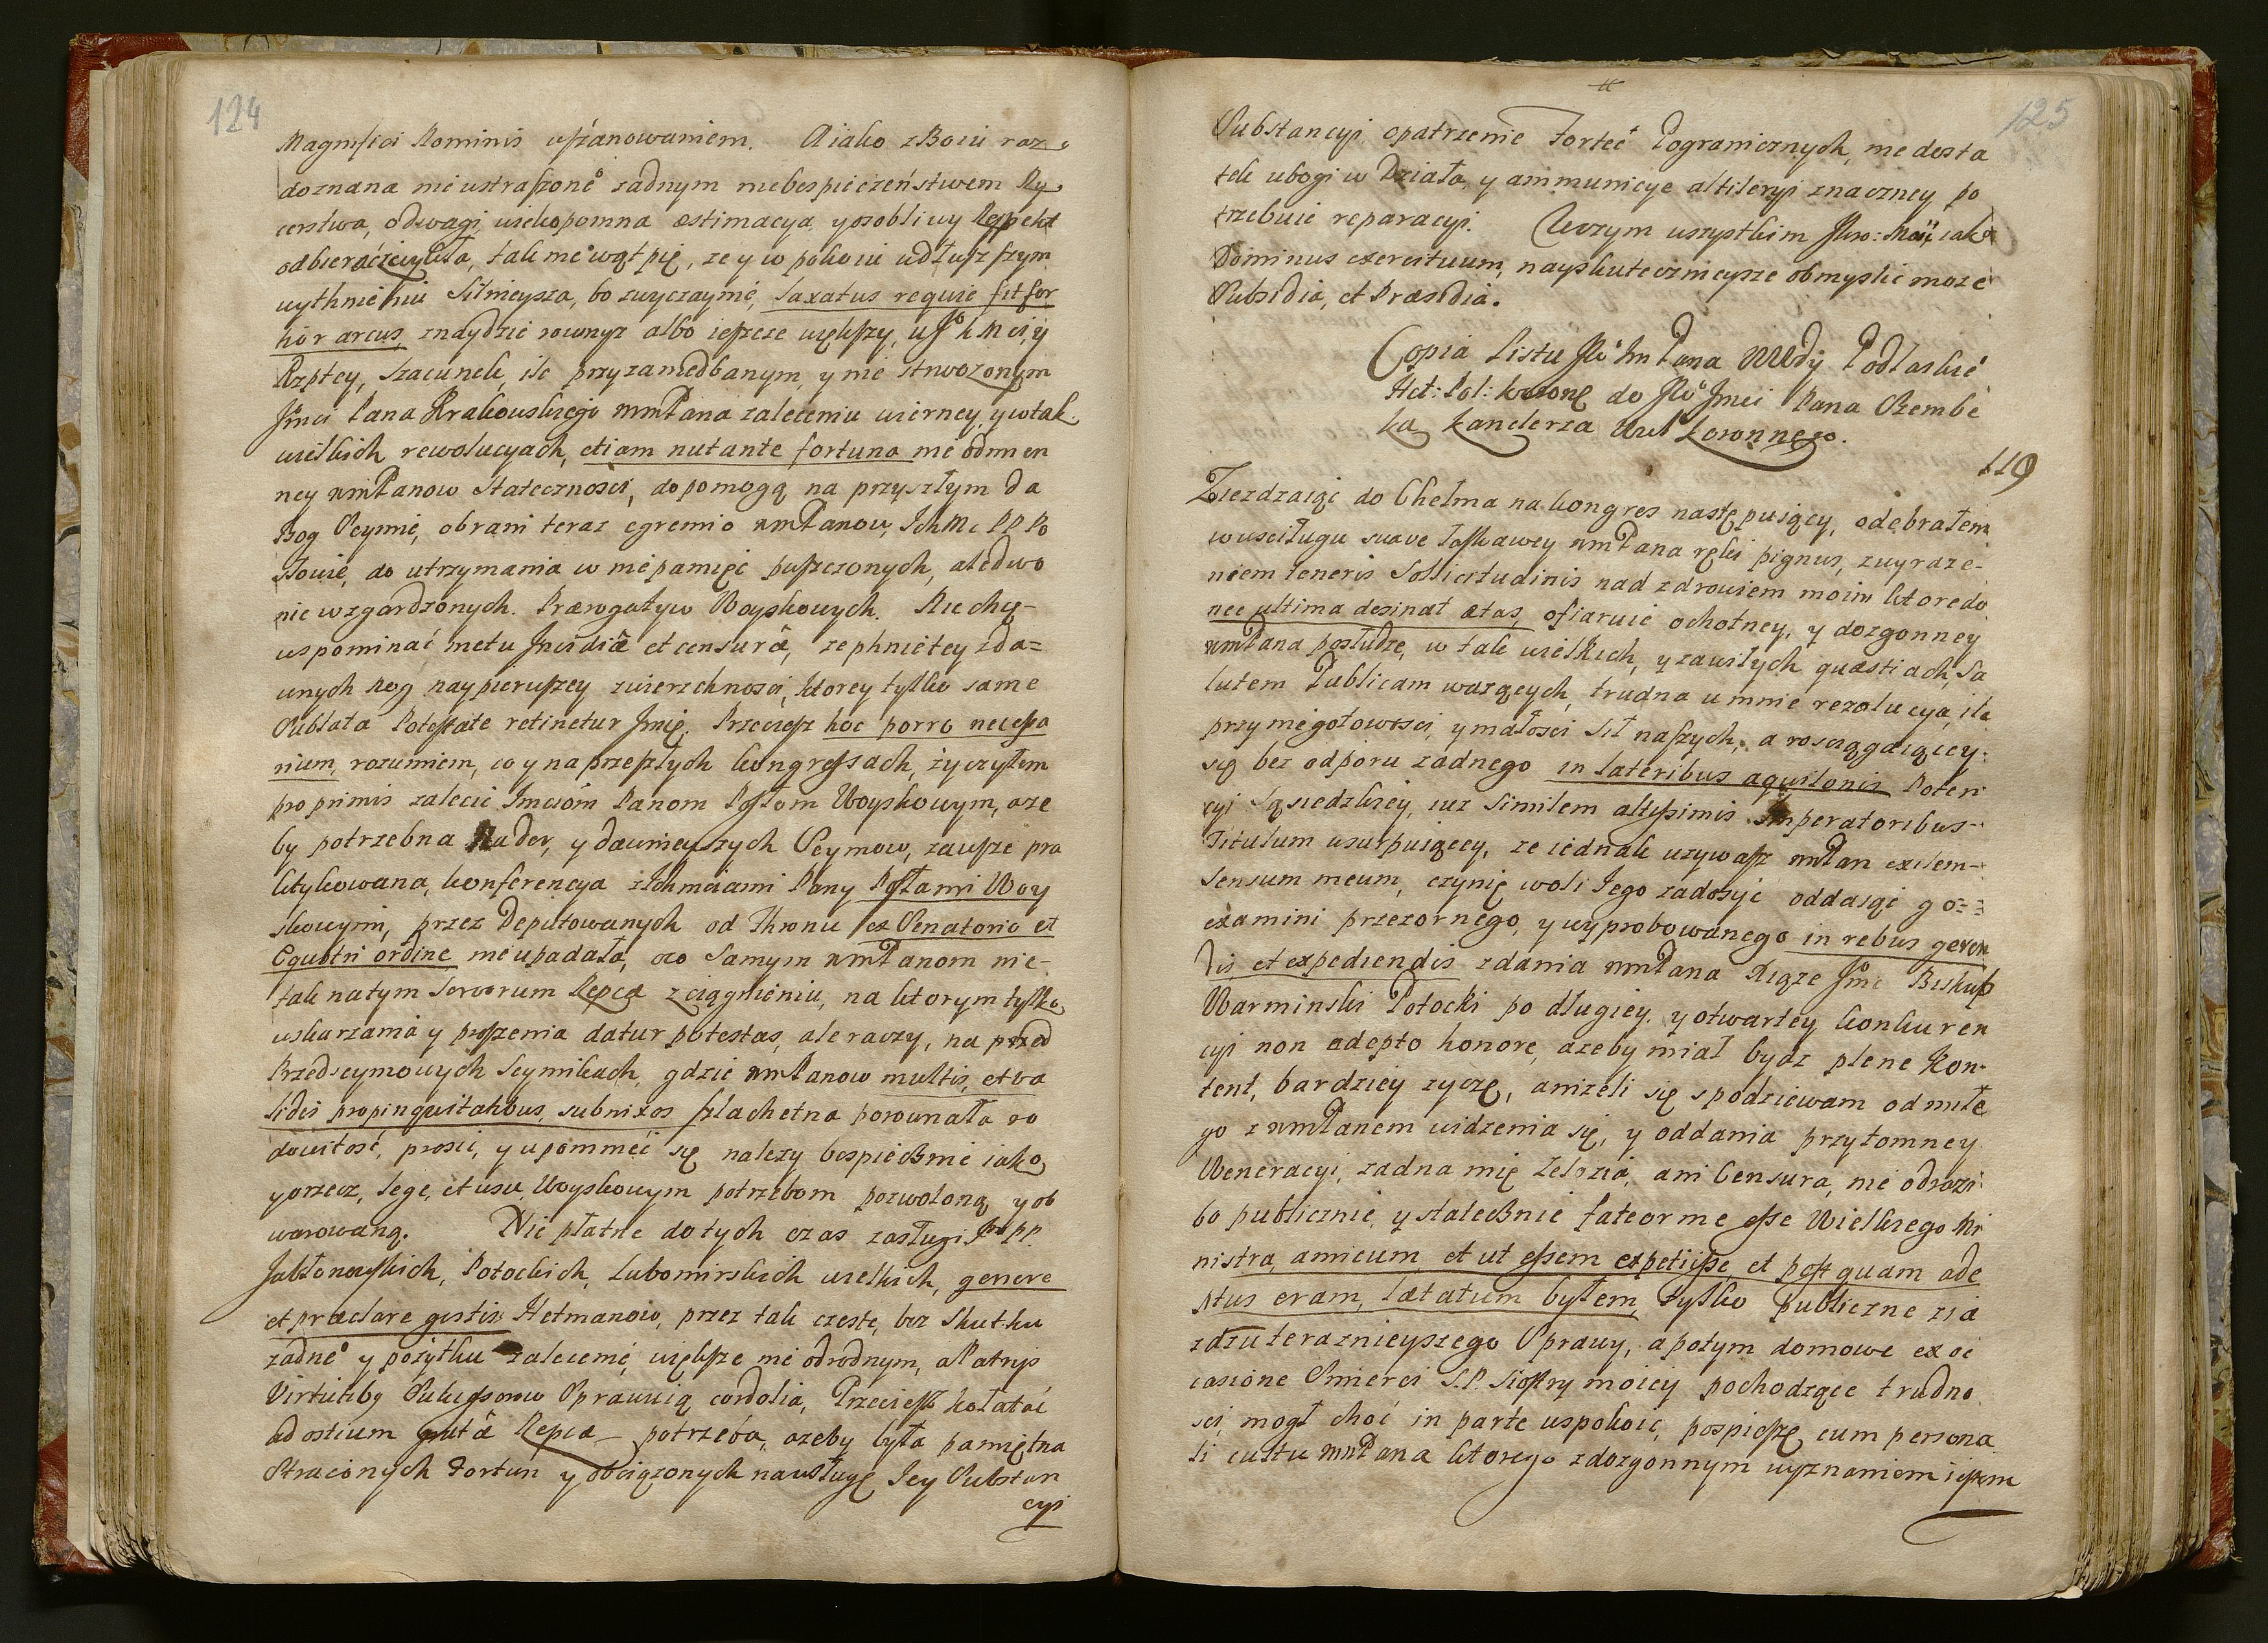 124
Magnifici Nominis uszanowaniem. A iako z Boiu raz
doznana nieustraszone° zadnym niebespieczeństwem Ry
cerstwa, odwagi, wiekopomna æstimacya, y osobliwy Respekt
odbierać zwykła, tak nie wątpię, ze y w pokoiu udłuższym
wythnieniu silnieysza, bo zwyczaynie, Laxatus requie fit for
tior arcus, znaydzie rownyz albo ieszcze większy, u J° K Mci, y
Rzptey, szacunek, ile przy zaniedbanym, y nie stwozonym
Jmci Pana Krakowskiego wmPana zaleceniu wierney, y w tak
wielkich rewolucyach, etiam nutante fortuna nie odmien
ney wmPanow Stateczności, dopomogą na przyszłym da
Bog Seymie, obrani teraz e gremio wmPanow, Ich Mc PP Po
słowie, do utrzymania w niepamięć puszczonych, aledwo
nie wzgardzonych. Prærogatyw Woyskowych. Nie chcę
wspominać metu Jnvidiæ et censuræ, ze phnietey zda=
wnych Nog naypierwszey zwierzchności, ktorey tylko same
Sublata Potestate retinetur Jmię. Przeciesz hoc porro necessa
rium, rozumiem, co y na przeszłych kongressach, życzyłem
pro primis zalecić Jmciom Panom Posłom Woyskowym, aze
by potrzebna Nader, y dawnieyszych Seymow, zawsze pra
ktykowana, konferencya z Ichmciami Pany Posłami Woy
skowymi, przez Deputowanych od Thronu ex Senatorio et
Equestri ordine nie upadała, oco samym wmPanom nie
tak na tym servorum Repcæ zciągnieniu, na ktorym tylko
uskarzania y proszenia datur potestas, ale raczy, na przed
Przedseymowych Seymikach, gdzie wmPanow multis, et va
lidis propinquitatibus, subnixos szlachetna porownała ro
dowitość, prosić, y upomnieć się nalezy bespiecznie iako
y orzecz, lege, et usu, Woyskowym potrzebom pozwoloną y ob
warowaną. Nie płatne do tych czas zasługi PP.
Jabłonowskich, Potockich, Lubomirskich wielkich, genere
et præclare gestis Hetmanow, przez tak częste, bez skutku
zadne° y pożytku zalecenie, większe nie odrodnym, a Patrijs
Virtutibq Sukcessorow Sprawuią cordolia, Przeciesz kołatać
ad ostium gratæ Repcæ potrzeba, azeby była pamiętna
Straconych Fortun y obciązonych na usługę Jey Substan
cyi
125
Substancyi, opatrzenie Fortec Pogranicznych, nie dosta
tek ubogi w Działa, y ammunicye altileryi znaczney po
trzebuie reparacyi. Uczym wszystkim Jkro: Mość iako
Dominus exercituum, nayskutecznieysze obmyslić moze
Subsidia, et Præsidia.
Copia Listu JW° Jm Pana WWdy Podlaskie°
Het: Pol: koronę do JW° Jmci Pana Szembe
ka Kanclerza Wiel Koronnego.
119
Ziezdzaiąc do Chełma na kongres następuiący, odebrałem
w usciługu suave łaskawey wmPana ręki pignus, z wyraze-
niem teneris sollicitudinis nad zdrowiem moim ktore do
nec ultima desinat ætas, ofiaruie ochotney, y dozgonney
wmPana posłudze, w tak wielkich, y zawiłych quæstiach, Sa
lutem Publicam wazących, trudna u mnie rezolucya, ile
przy niegotowości, y małości Sił naszych, a rosciągaiącey
się bez odporu zadnego in lateribus aquilonis Poten
cyi Sąsiedzkiey, iuz similem altissimis Imperatoribus
Titulum usurpuiącey, ze iednak uzywasz wmPan exilem
sensum meum, czynię woli Jego zadosyć oddaiąc go=
examini przezornego, y wyprobowanego in rebus geren
dis et expediendis zdania wmPana Xiąze Jm° Biskup
Warminski Potocki po długiey, y otwartey konkuren
cyi non adepto honore, azeby miał bydz plene kon-
tent, bardziey zyczę, anizeli się spodziewam od miłe
go z wmPanem widzenia się, y oddania przytomney
Weneracyi, zadna mię Zelozia, ani Censura, nie odrazi
bo publicznie, y statecznie fateor me esse Wielkiego Mi
nistra, amicum, et ut essem expetiisse, et post quam ade
ptus eram, lætatum byłem, tylko publiczne zia
zdzu teraznieyszego Sprawy, a potym domowe ex oc
casione Smierci S.P. Siostry moiey pochodzące trudno
sci, mogł choć in parte uspokoić, pospieszę cum persona
li cultu wmPana ktorego z dozgonnym wyznaniem iestem